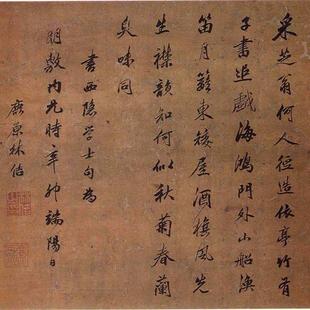 采芝翁何人径造依亭竹有
子書追戲海鴻門外山船漁
笛月籬東矮屋酒旗風先
生襟韻知何似秋菊春蘭
臭味同
書西隱学士句為
朗敷内兄時辛卯端陽日
鹿原林佶